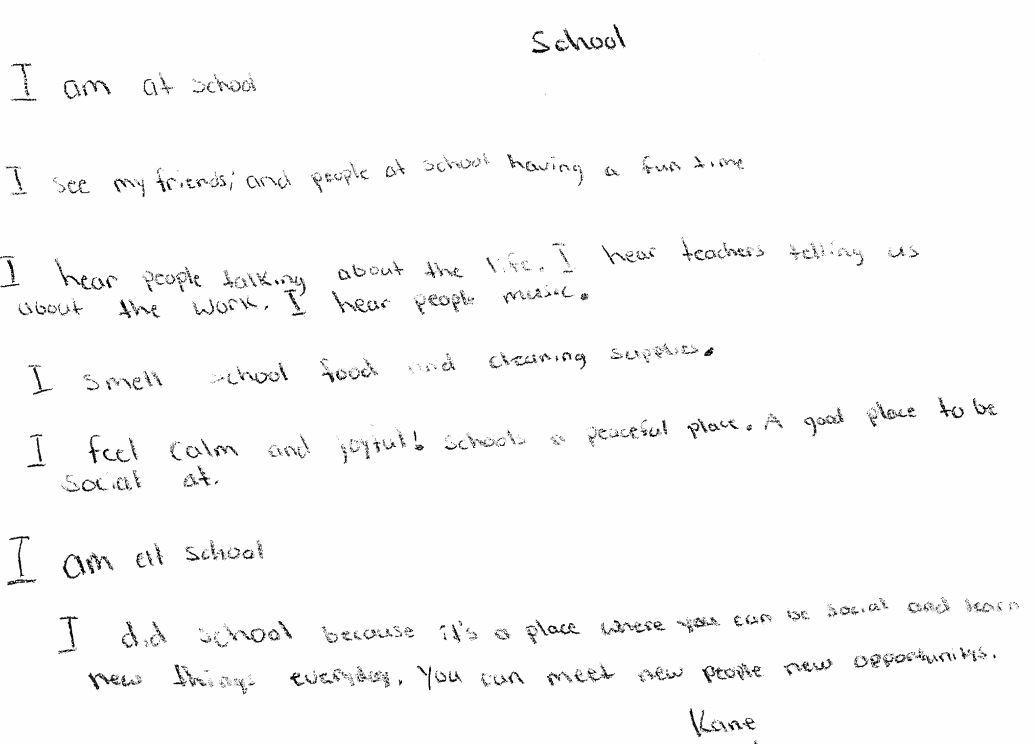 School
I am at school
I see my friends, and people at school having a fun time
I hear people talking about the life. I hear teachers telling us
about the work. I hear people music.
I smell school food and cleaning supplies.
I feel calm and joyful! schools a peaceful place. A good place to be
social at.
I am at school
I did school because it's a place where you can be social and learn
new things everyday. You can meet new people new opportunitys.
Kane